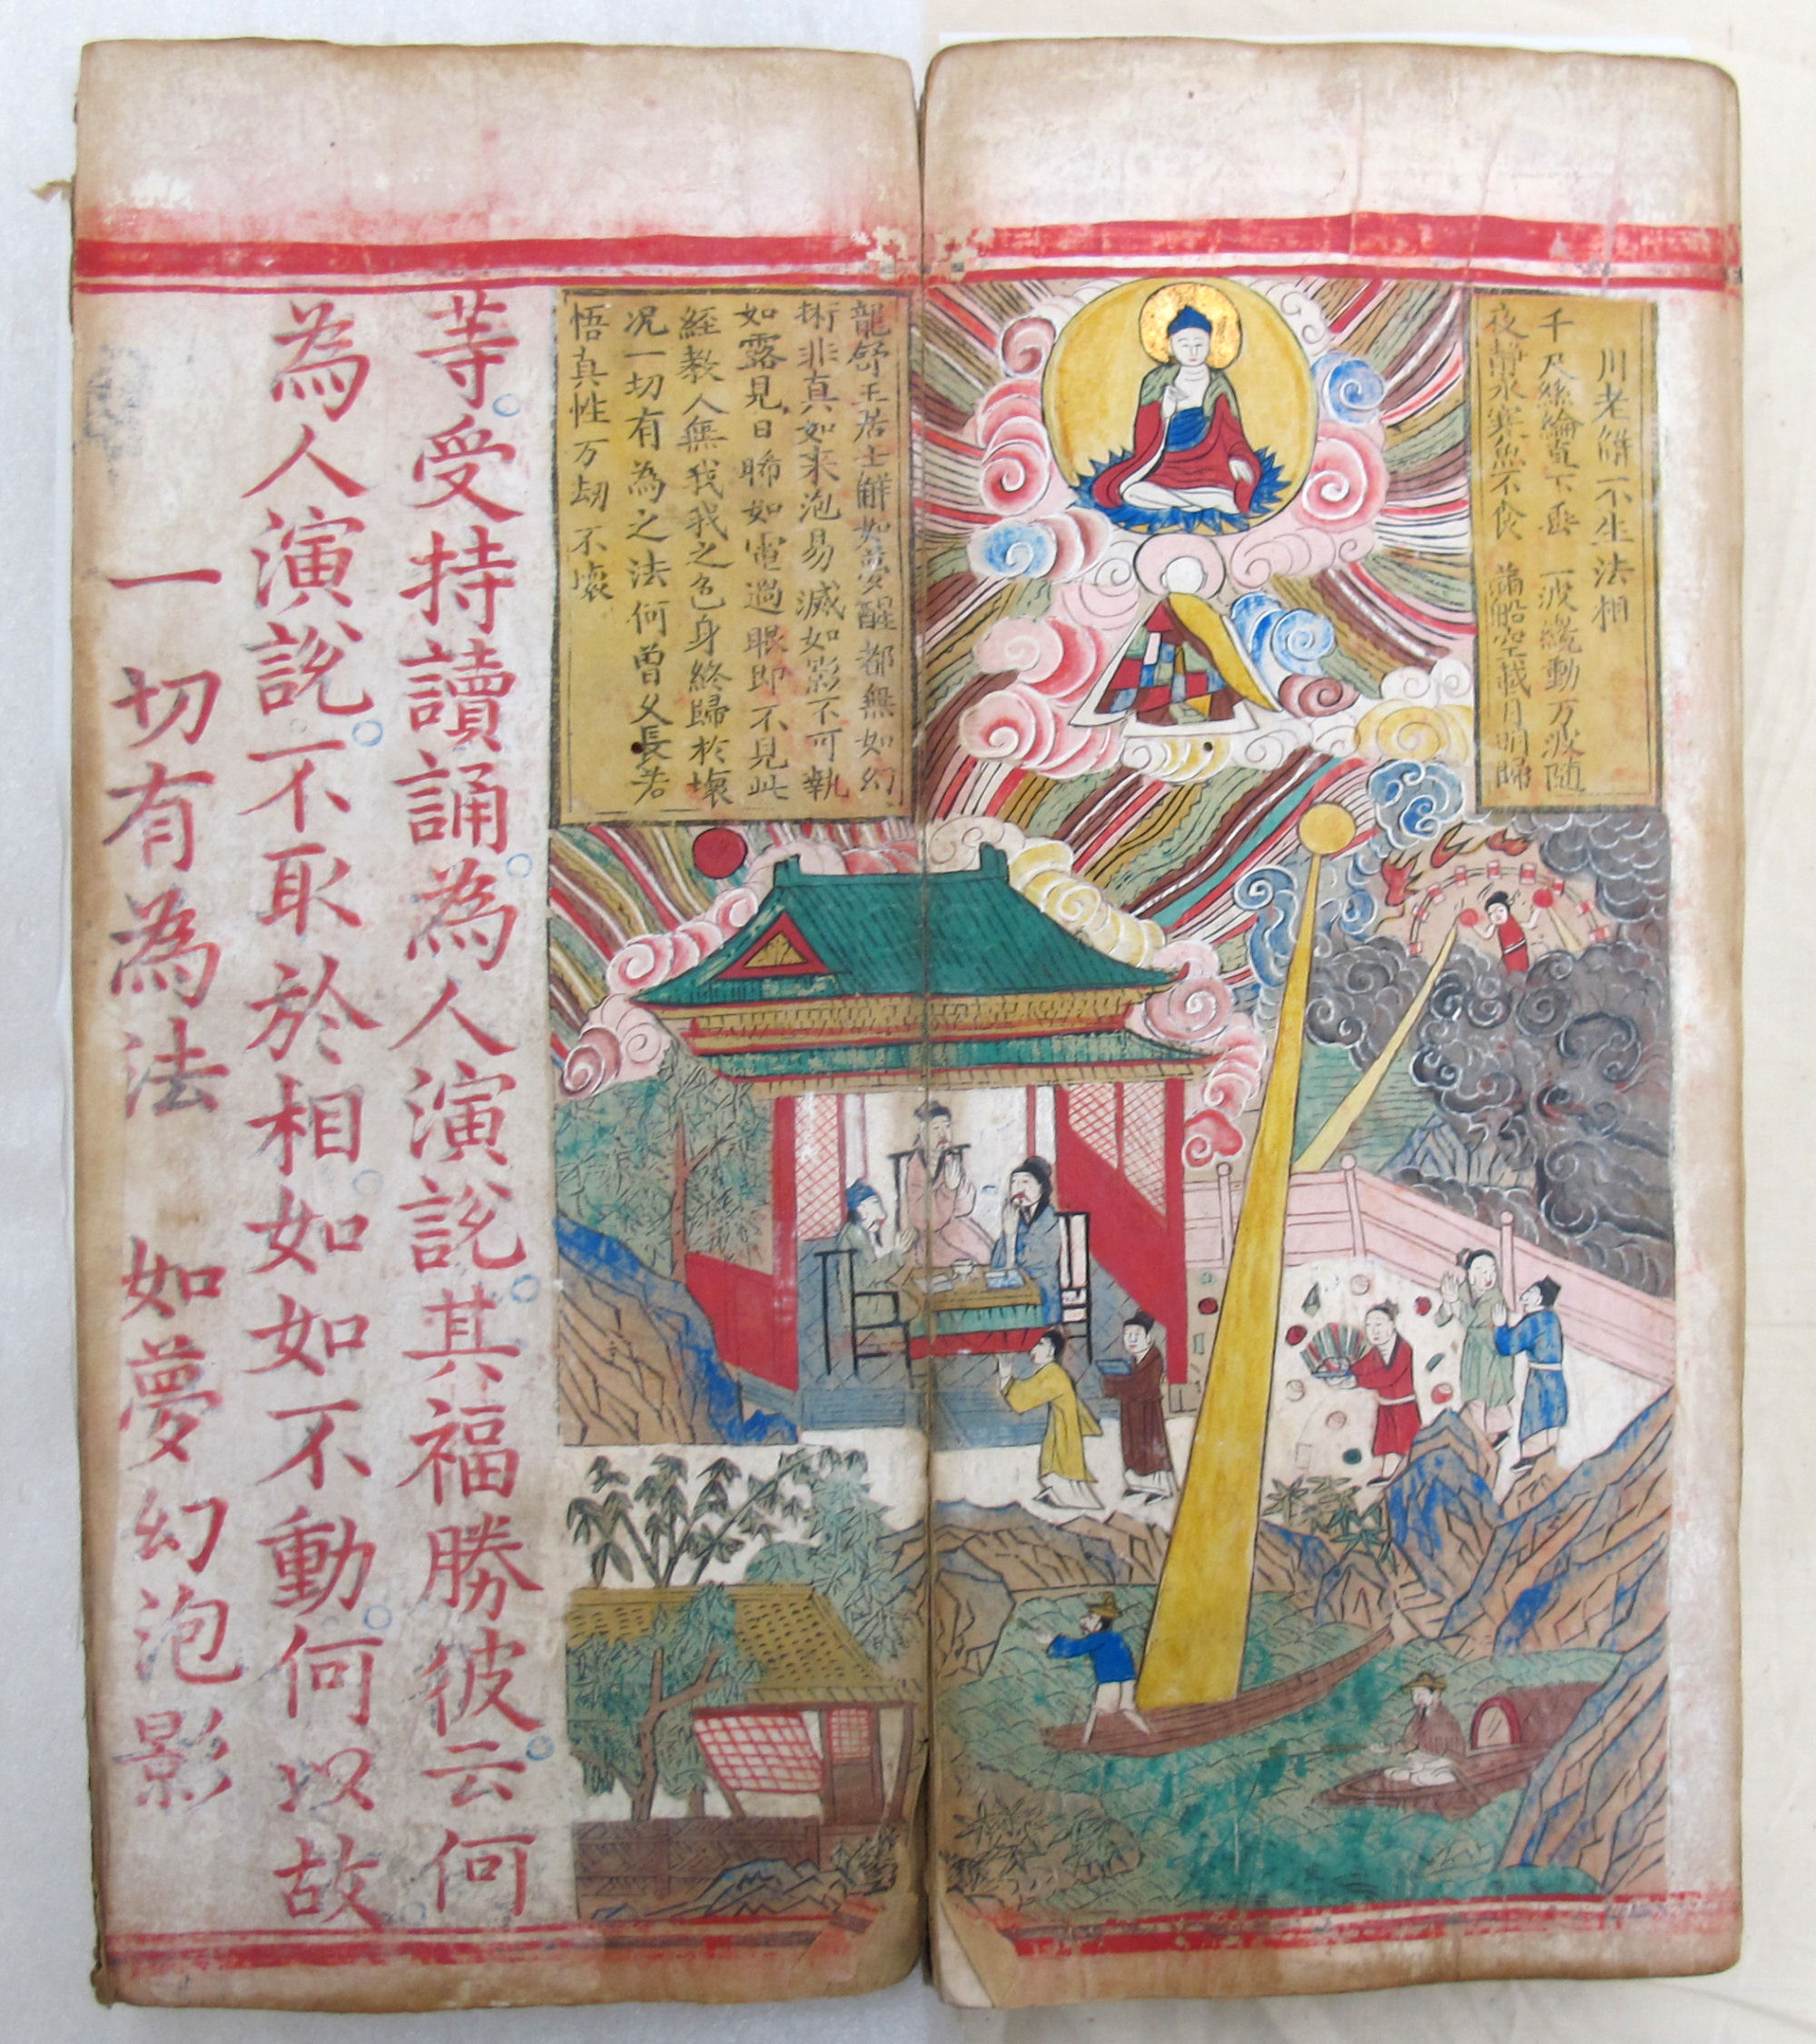 川老解不生法相
千尺絲綸直下垂 一波纔動万波随
夜靜水寒魚不食 滿船空載月明歸
龍舒王居士解如夢醒都無如幻
術非真如来泡易滅如影不可執
如露見日晞如電過眼即不見此
経教人無我我之色身終歸於壞
况一切有為之法何曾久長若
悟真性万劫不壞
等受持讀誦為人演說其福勝彼云何
為人演說不取於相如如不動何以故
一切有為法 如夢幻泡影